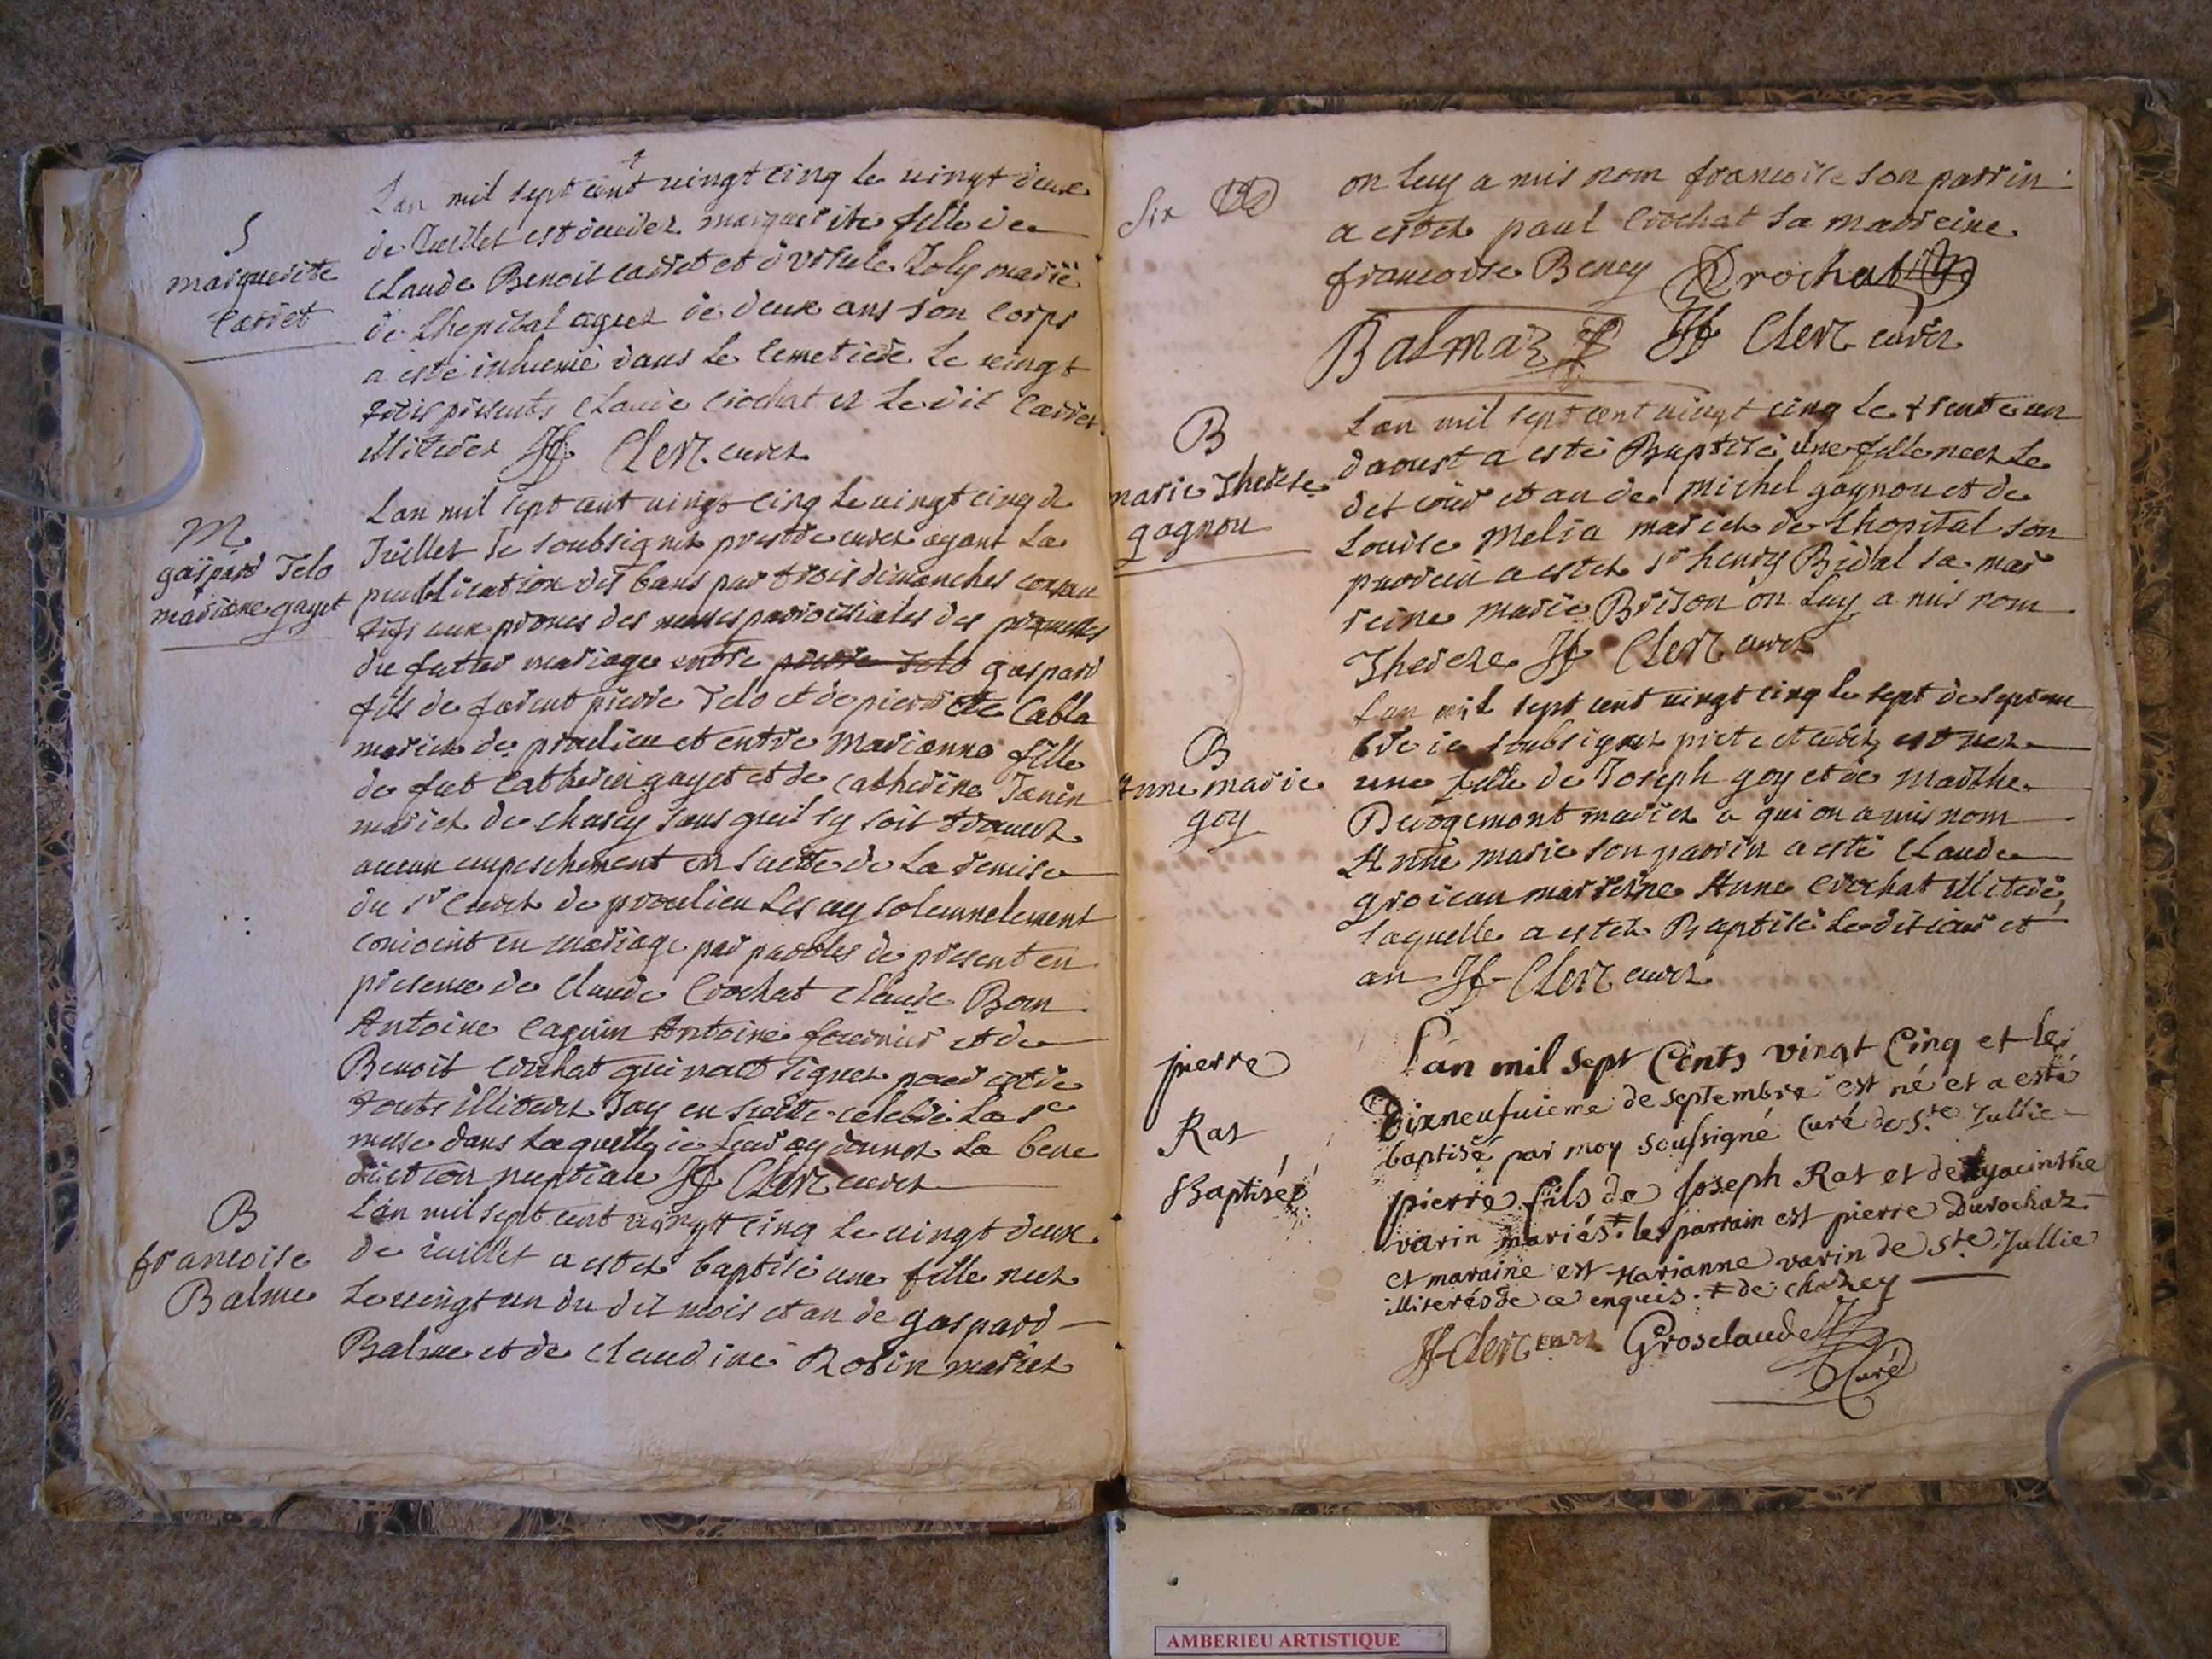 S
marguerite
Carret
Lan mil sept cent vingt cinq le vingt deux
de Juillet est decedez marguerite fille de
Claude Benoit Carret et d ursule Joly marié
de Lhopital agee de deux ans son corps
a esté inhumé dans le cemetiere le vingt
trois presents Claude Crochat et ledit Carret
illiterez Clerc curez
M
gaspard Telo
marianne gayet
Lan mil sept cent vingt cinq le vingt cinq de
Juillet Je soubsignez prestre curez ayant la
publication des bans par trois dimanches consecu
tifs aux prones des messes parroissiales des promesses
du futur mariage entre pierre Telo gaspard
fils de pierre Telo et de pierrette Cabla
mariez de proulieu et entre Marianne fille
de fut Catherin gayet et de Catherine Janin
mariez de chasey sans queil sy soit trouvez
aucun empeschement en suitte de la remise
du sr Curez de proulieu les ay solemnelement
conioint en mariage par paroles de present en
presence de Claude Crochat Claude Bon
Antoine Caguin Antoine fournier et de
Benoit Crochat qui nont signez pour estre
touts illiterez Jay en suitte celebré la ste
messe dans laquelle ie leur ay donnez la bene
diction nuptiale Clerc curez
B
francoise
Balme
Lan mil sept cent vingt cinq le vingt deux
de iuillet a estez baptisé une fille neez
le vingt un du dit mois et an de gaspard
Balme et de Claudine Robin mariez
Six
on luy a mis nom francoise son parrin
a estez paul Crochat sa marreine
francoise Beney Crochat
Balmaz Clerc curez
B
marie Therese
gagnon
Lan mil sept cent vingt cinq le trente un
daoust a esté Baptisé une fille neez le
dit iour et an de michel gagnon et de
Louise Melia mariez de Lhopital son
parrein a estez sr henry Bidal sa mar
reine marie Brison on luy a mis nom
Therese Clerc curez
B
Anne marie
goy
Lan mil sept cent vingt cinq le sept de septem
bre ie soubsignez prete et curez est nez
une fille de Joseph goy et de Marthe
Derogemont mariez a qui on a mis nom
Anne marie son parrin a esté Claude
groiean marreine Anne Crochat illiteré
laquelle a estez Baptisé ledit iour et
an Clerc curez
pierre
Rat
Baptisé
Lan mil sept Cents vingt Cinq et le
Dixneufuieme de septembre est né et a esté
baptisé par moy soussigné Curé de Ste Jullie
pierre fils de Joseph Rat et de hyacinthe
varin mariés. ‡ le parrain est pierre Durochat
et maraine est Marianne varin de Ste Jullie
illiterés de ce enquis. ‡ de chazey
Clerc curez Grosclaude
Curé
AMBERIEU ARTISTIQUE